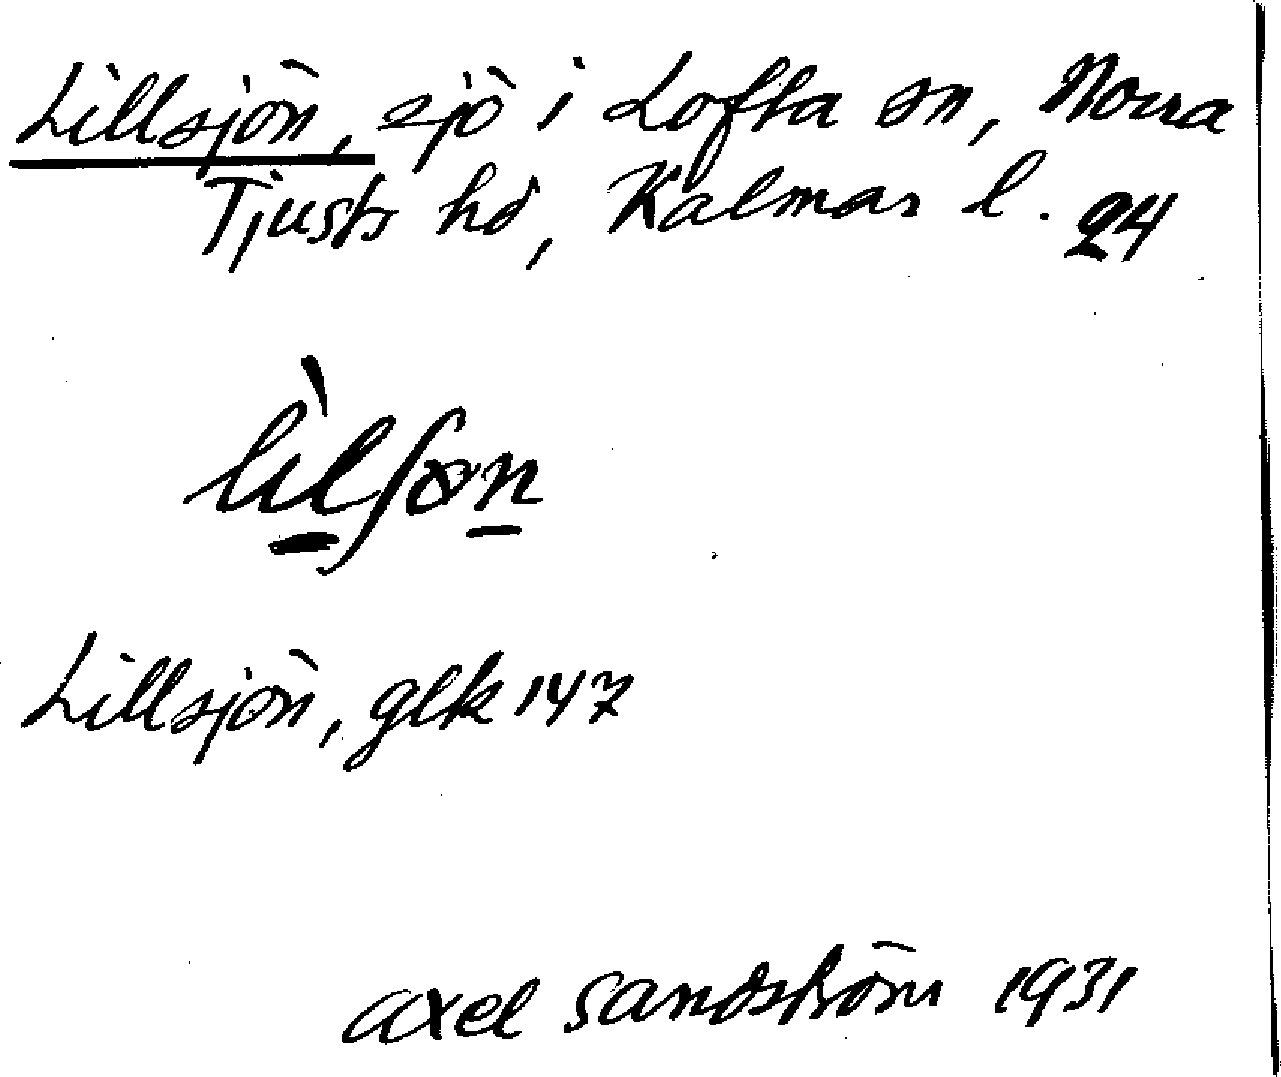 Lillsjön, sjö i Lofta sn, Norra
Tjusts hd, Kalmar l. 24
lìlʃɷn
Lillsjön, glk 147
Axel Sandström 1931